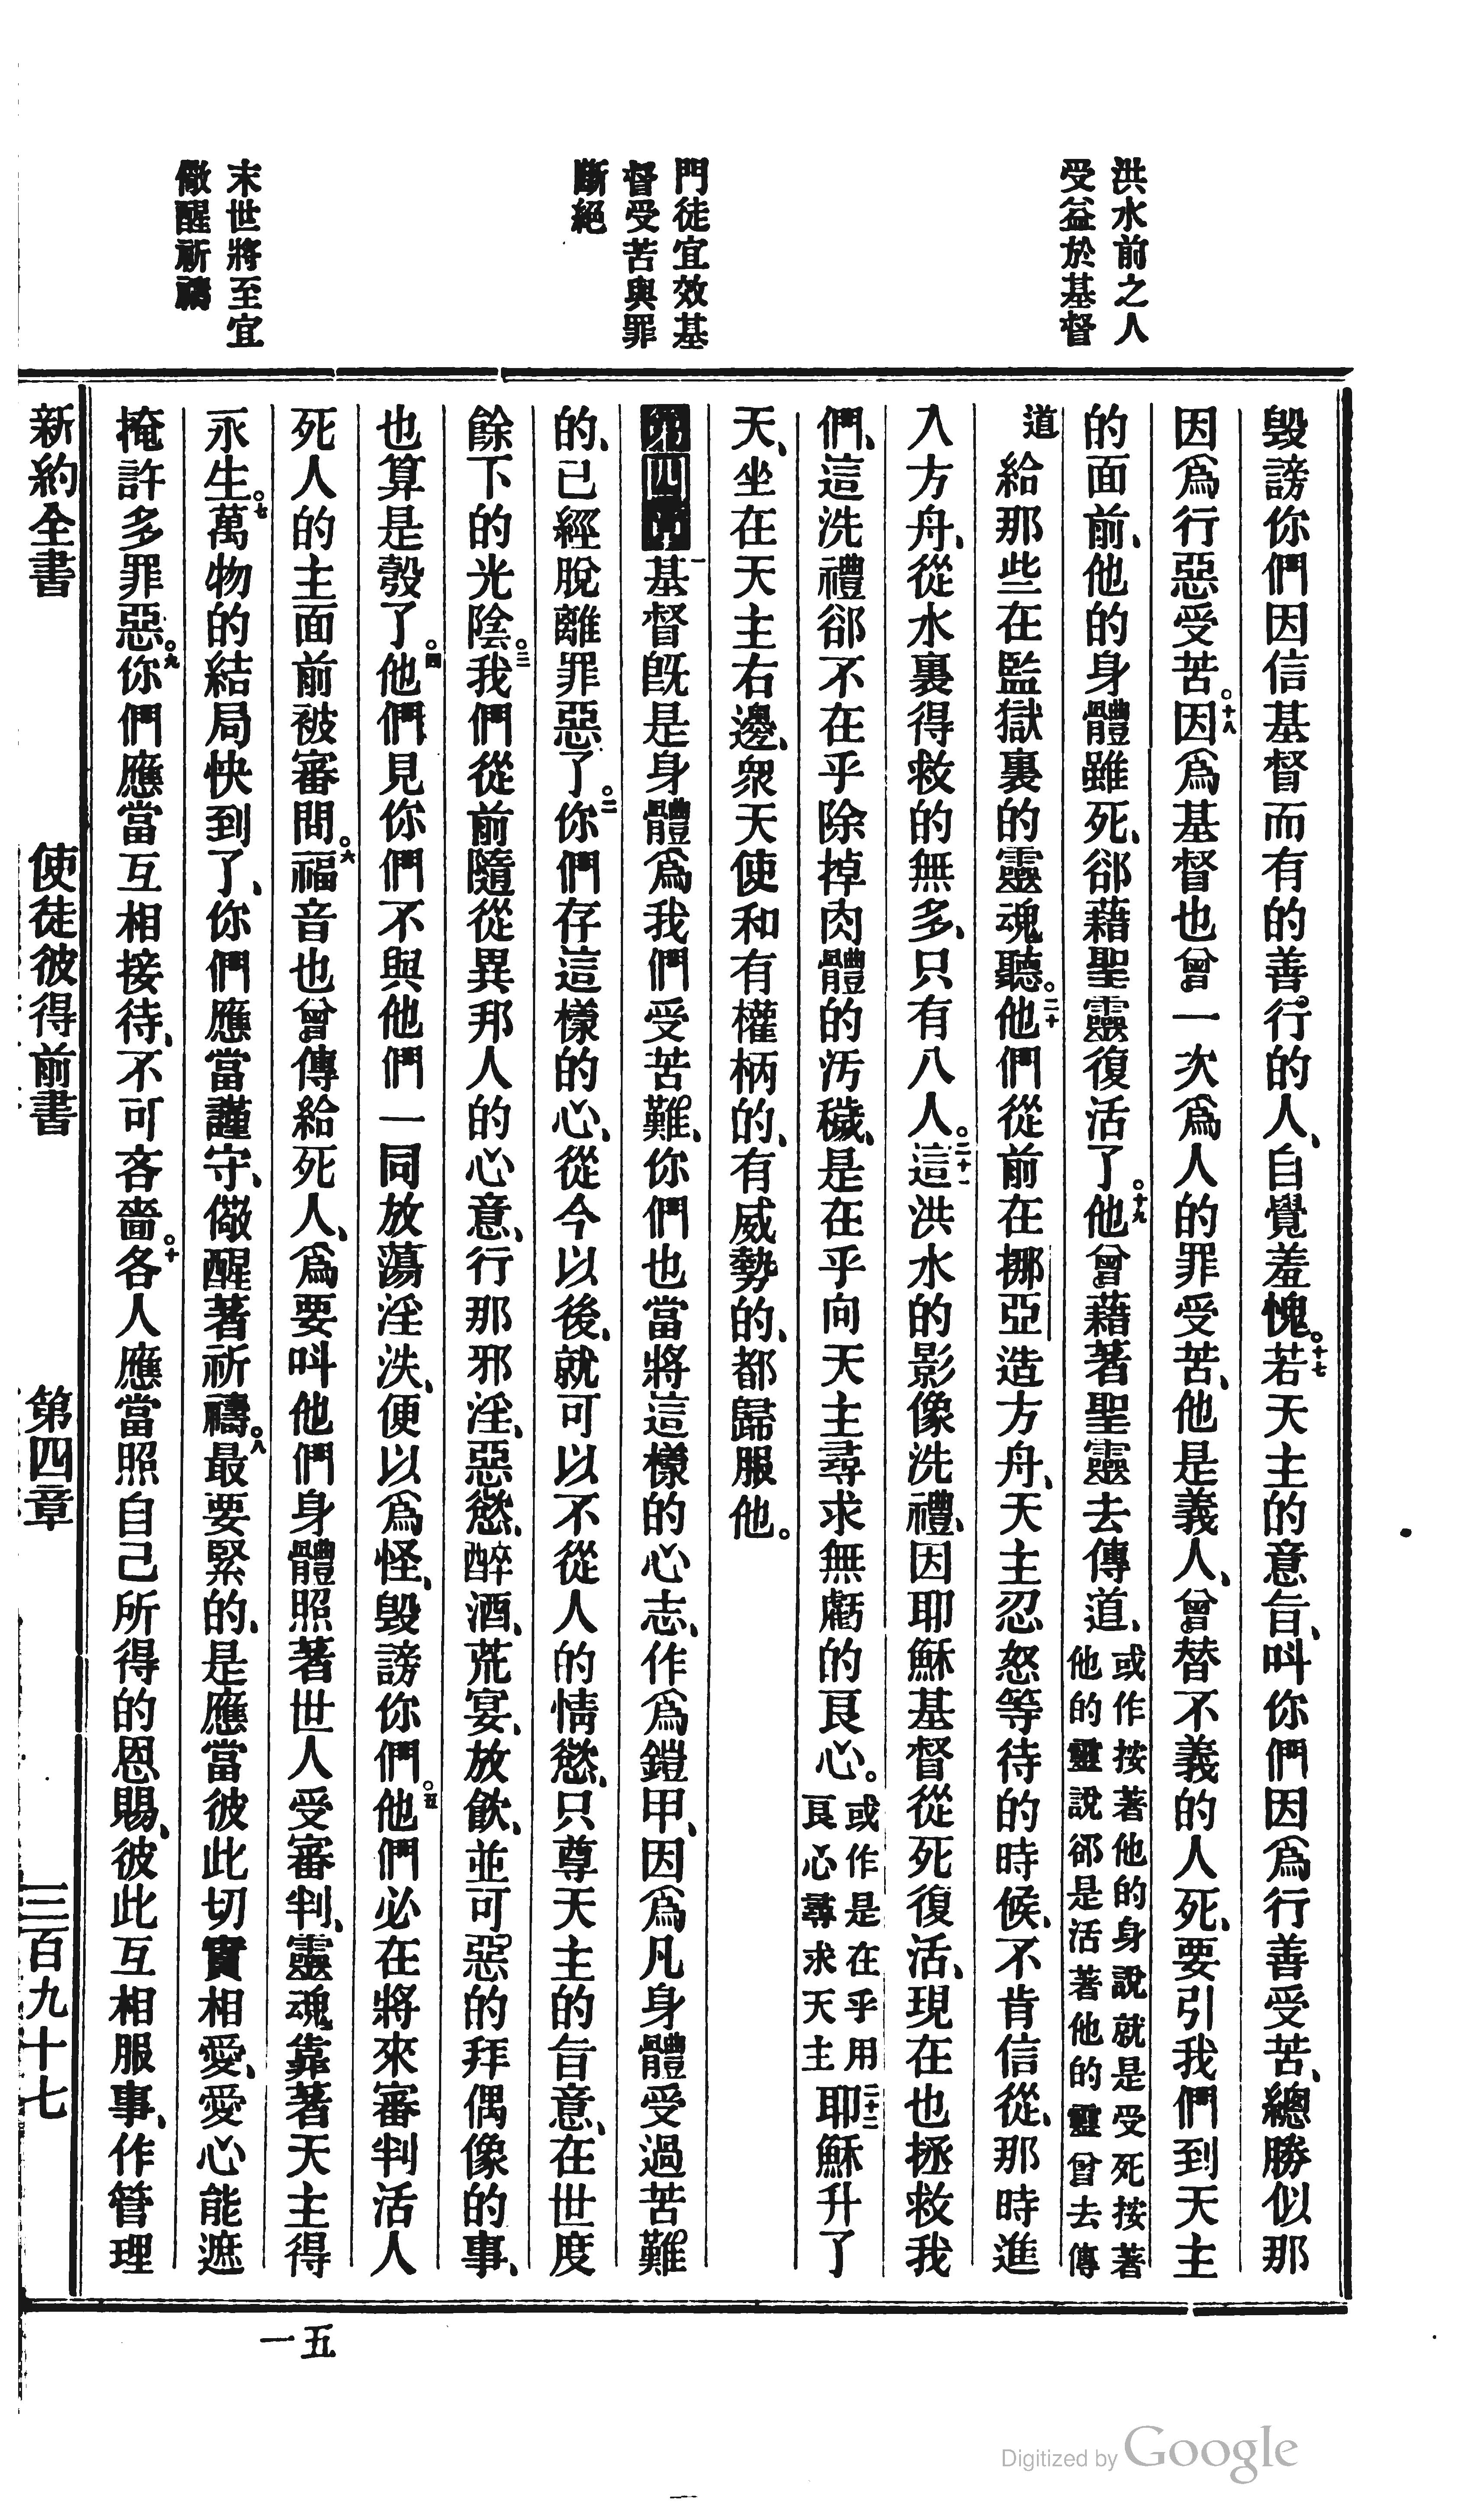 洪水前之人
受益於基督
門徒宜效基
督受苦與罪
斷絕
末世將至宜
儆醒祈禱
毀謗你們因信基督而有的善行的人、自覺羞愧。十七若天主的意旨、呌你們因爲行善受苦、總勝似那
因爲行惡受苦。十八因爲基督也曾一次爲人的罪受苦、他是義人、曾替不義的人死、要引我們到天主
的面前、他的身體雖死、卻藉聖靈復活了。十九他曾藉著聖靈去傳道、或作按著他的身說就是受死按著他的靈說卻是活著他的靈曾去傳
道給那些在監獄裏的靈魂聽。二十他們從前在挪亞造方舟、天主忍怒等待的時候、不肯信從、那時進
入方舟、從水裏得救的無多、只有八人。二十一這洪水的影像洗禮、因耶穌基督從死復活、現在也拯救我
們、這洗禮卻不在乎除掉肉體的汚穢、是在乎向天主尋求無虧的良心。或作是在乎用良心尋求天主二十二耶穌升了
天、坐在天主右邊、衆天使和有權柄的、有威勢的、都歸服他。
第四章一基督旣是身體爲我們受苦難、你們也當將這樣的心志、作爲鎧甲、因爲凡身體受過苦難
的、已經脫離罪惡了。二你們存這樣的心、從今以後、就可以不從人的情慾、只尊天主的旨意、在世度
餘下的光陰。三我們從前隨從異邦人的心意、行那邪淫、惡慾、醉酒、荒宴、放飮、並可惡的拜偶像的事、
也算是彀了。四他們見你們不與他們一同放蕩淫泆、便以爲怪、毀謗你們。五他們必在將來審判活人
死人的主面前被審問。六福音也曾傳給死人、爲要呌他們身體照著世人受審判、靈魂靠著天主得
永生。七萬物的結局快到了、你們應當謹守、儆醒著祈禱。八最要緊的、是應當彼此切實相愛、愛心能遮
掩許多罪惡。九你們應當互相接待、不可吝嗇。十各人應當照自己所得的恩賜、彼此互相服事、作管理
新約全書 使徒彼得前書 第四章 三百九十七
五一
Digitized by Google